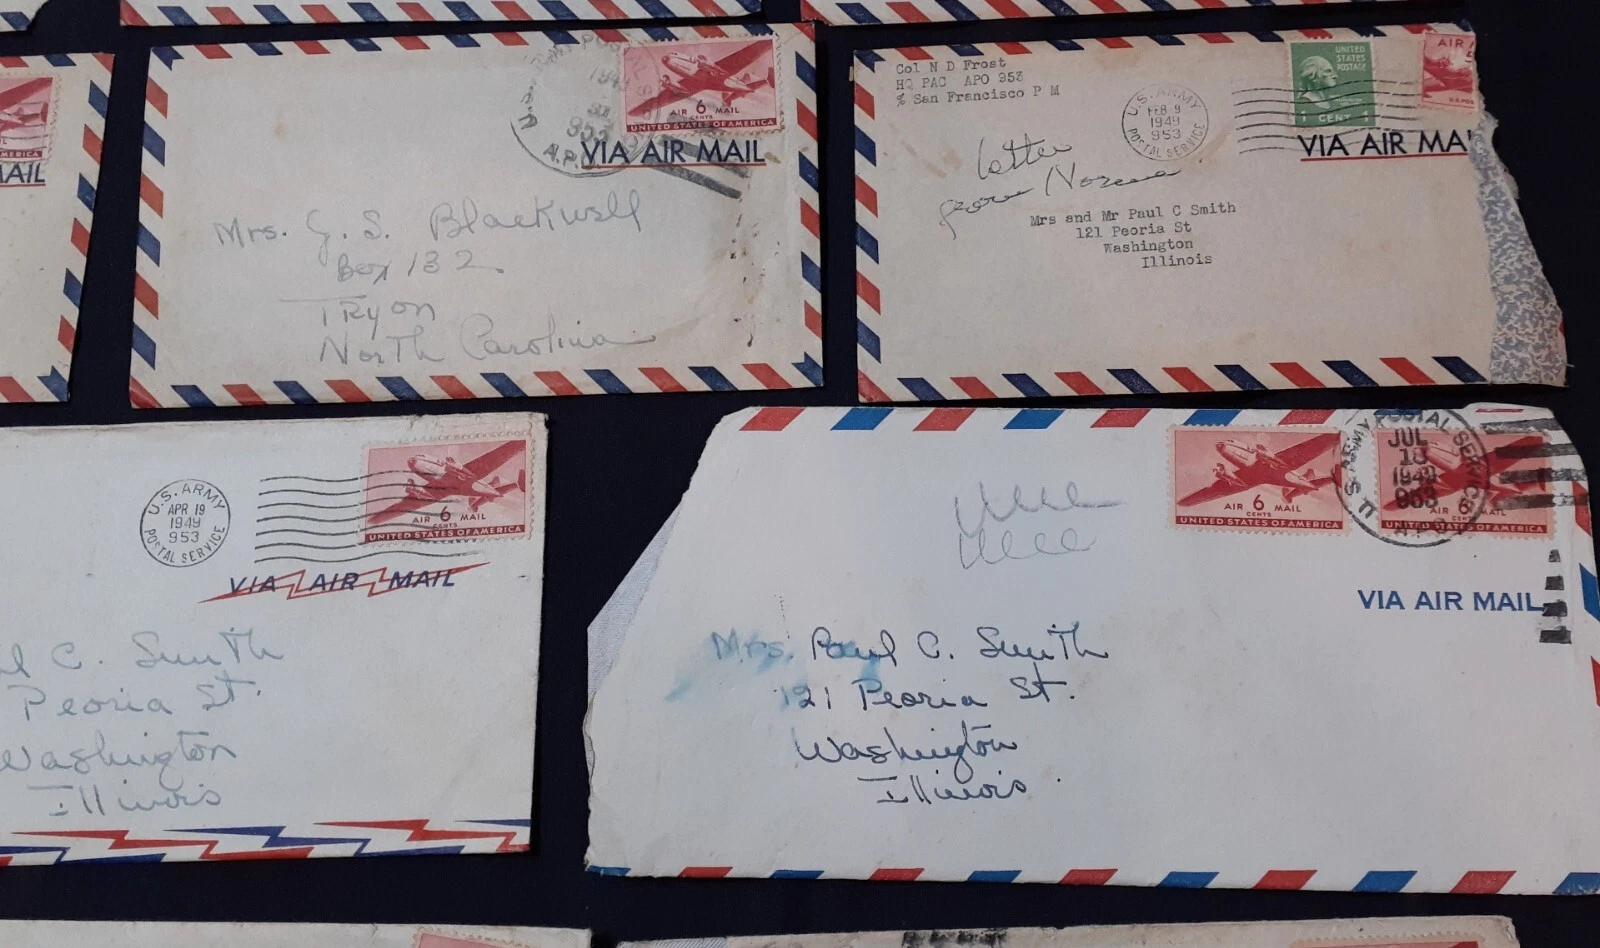 AMERICA
AIL
U.S. ARMY POSTAL
1949
953
A.P.
AIR 6 MAIL
CENTS
UNITED STATES OF AMERICA
VIA AIR MAIL
Mrs. G. S. Blackwell
Box 132
Tryon
North Carolina
Col N D Frost
HQ PAC APO 953
% San Francisco P M
U.S. ARMY
FEB 9
1949
953
POSTAL SERVICE
UNITED
STATES
POSTAGE
1 CENT 1
AIR
U.S. POS
VIA AIR MAI
Letter
from Norma
Mrs and Mr Paul C Smith
121 Peoria St
Washington
Illinois
U.S. ARMY
APR 19
1949
953
POSTAL SERVICE
AIR 6 MAIL
CENTS
UNITED STATES OF AMERICA
VIA AIR MAIL
ul C. Smith
Peoria St.
Washington
Illinois
AIR 6 MAIL
CENTS
UNITED STATES OF AMERICA
U.S. ARMY POSTAL SERVICE
JUL
18
1949
953
A.P.O.
AIR 6 MAIL
UNITED STATES OF AMERICA
VIA AIR MAIL
Mrs. Paul C. Smith
121 Peoria St.
Washington
Illinois